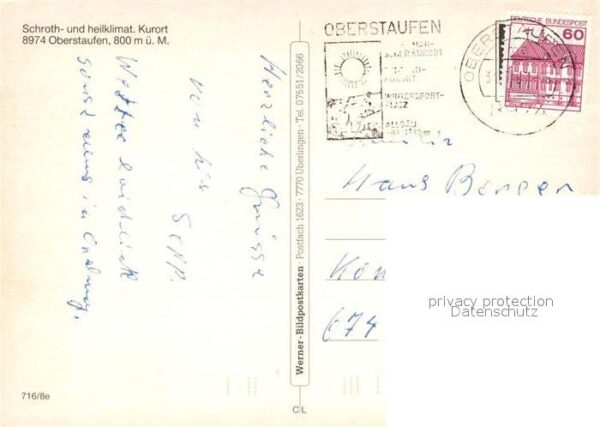 Schroth- und heilklimat. Kurort
8974 Oberstaufen, 800 m ü. M.
Herzliche Grüsse
von
Sepp.
Wetter leidlich
sonst alles in Ordnung.
Werner-Bildpostkarten · Postfach 1623 · 7770 Überlingen · Tel. 07551/2066
OBERSTAUFEN
KURORT
WINTERSPORT-
PLATZ
ALLGÄU
DEUTSCHE BUNDESPOST
60
Familie
Hans Bergen
674
privacy protection
Datenschutz
716/8e
CL